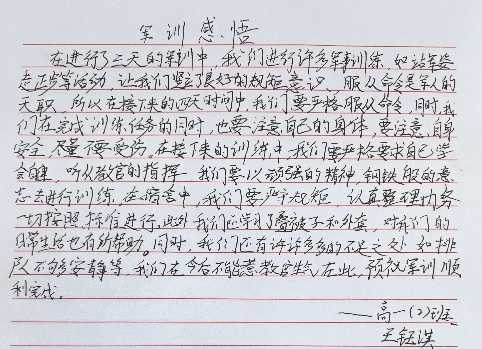 军训感悟
在进行了三天的军训中，我们进行许多军事训练，如站军姿
走正步等活动，让我们竖立了良好的规矩意识，服从命令是军人的
天职，所以在接下来的四天时间中，我们要严格服从命令，同时，我
们在完成训练任务的同时，也要注意自己的身体，要注意自身
安全，尽量不要受伤。在接下来的训练中我们要严格要求自己学
会自律，听从教官的指挥，我们要以顽强的精神，钢铁般的意
志去进行训练，在宿舍中，我们要严守规矩，认真整理内务
一切按照标准进行，此外我们还学习了叠被子和外套，对我们的
日常生活也有所帮助。同时，我们还有许许多多的不足之处，如排
队不够安静等，我们在今后不能惹教官生气，在此，预祝军训顺
利完成。
——高一(2)班
王钰淇